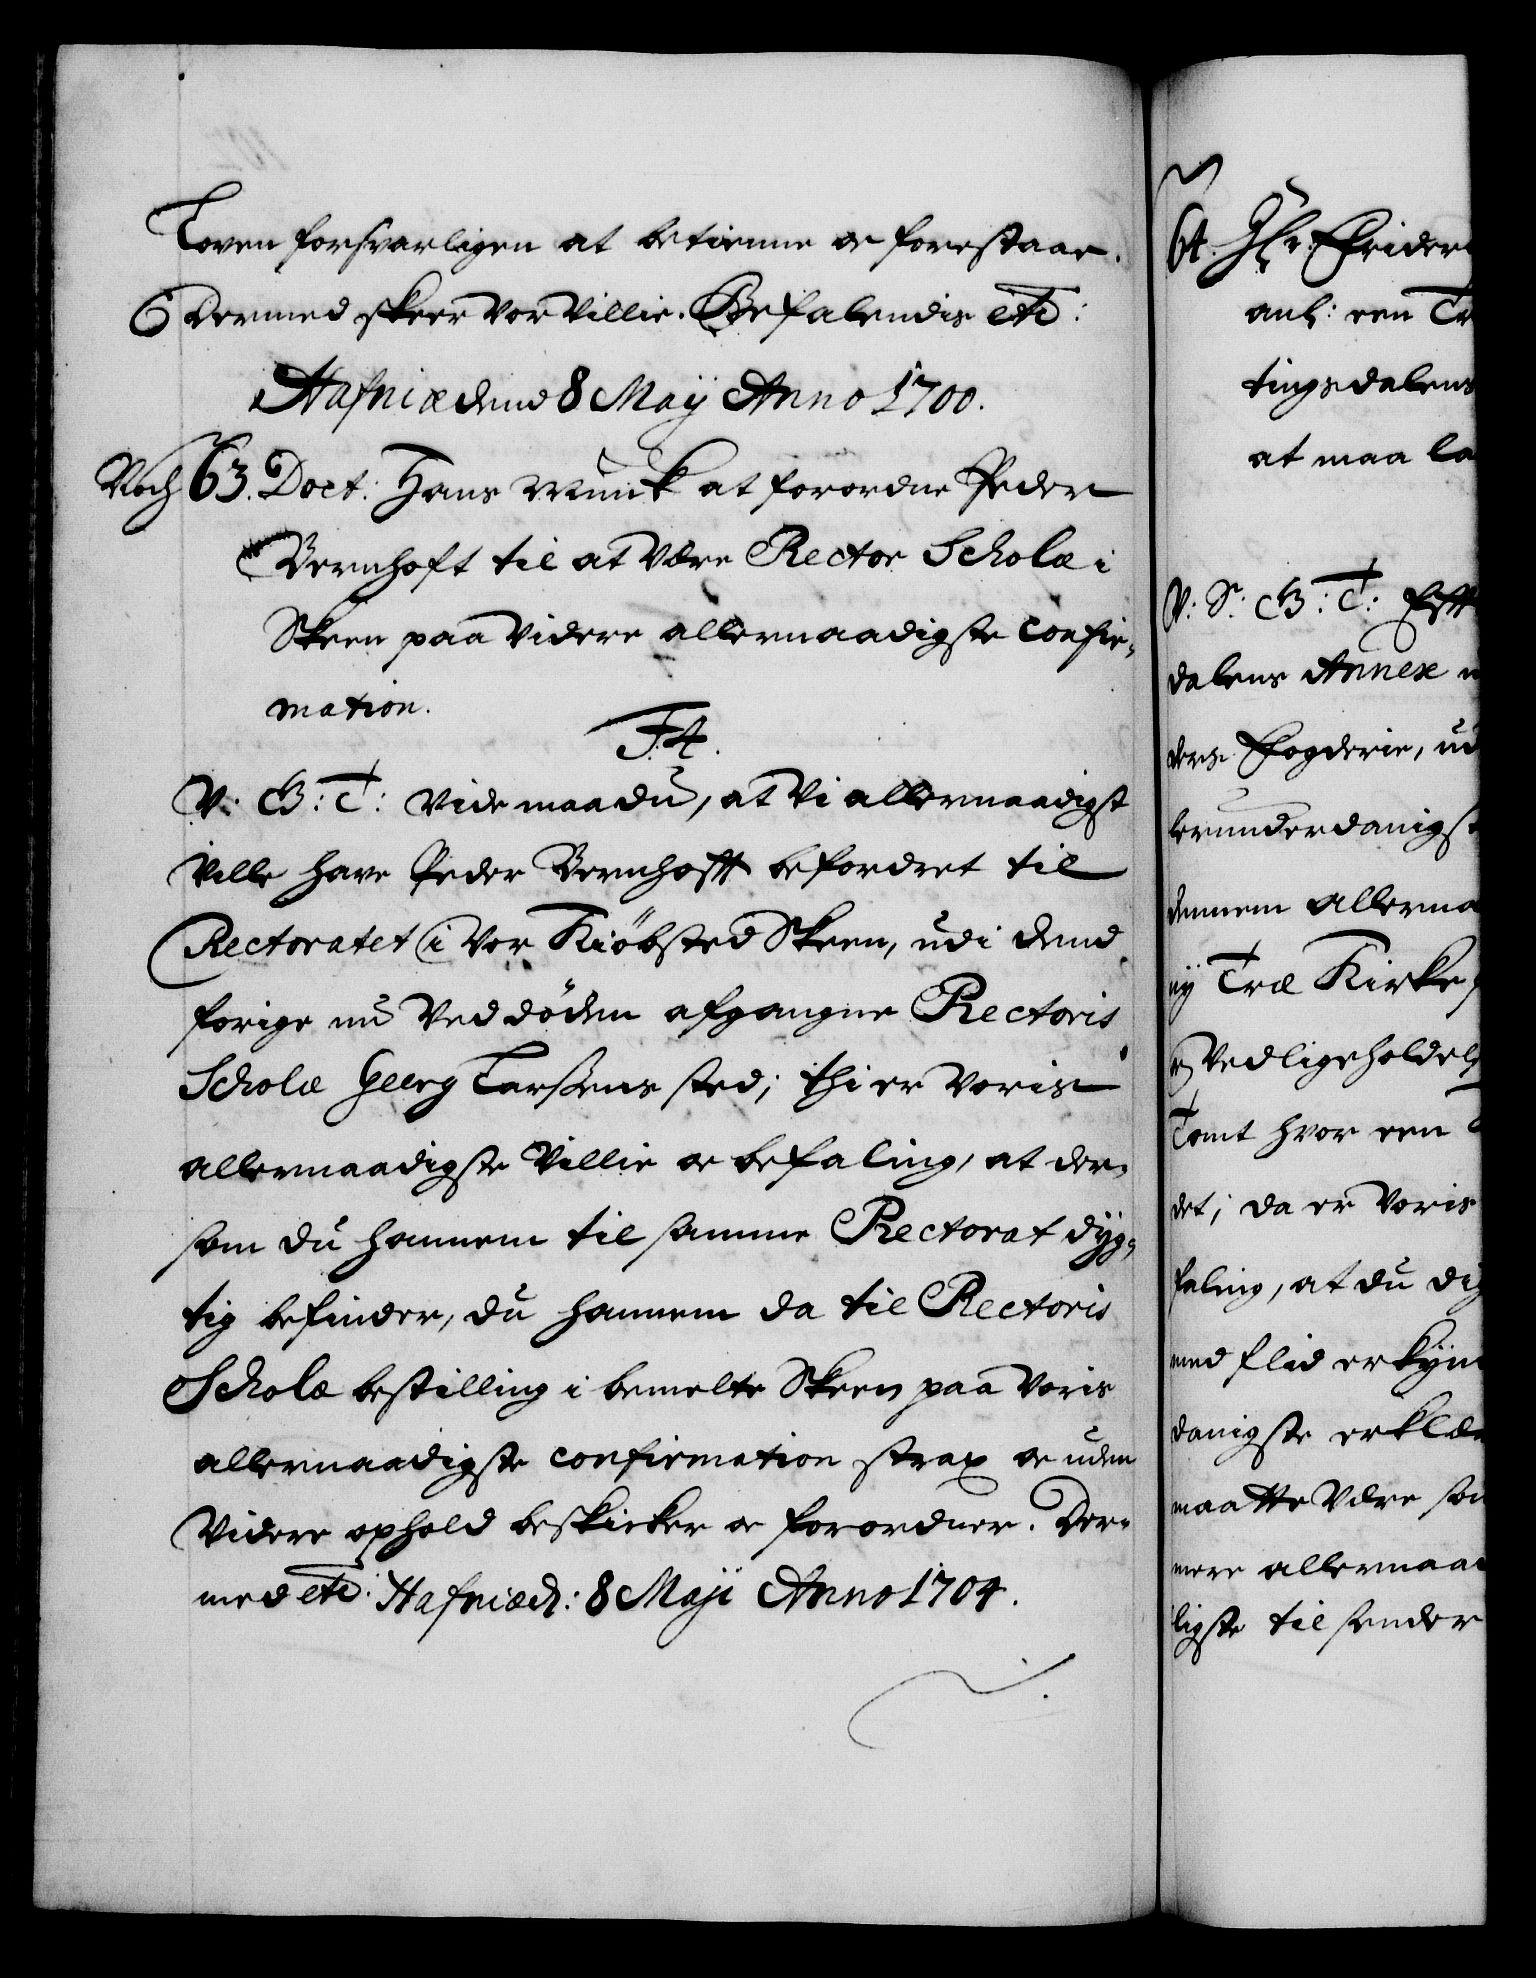 Loven forsvarligen at betienne oc forestaae.
Dermed skeer Vor Villie. Befalendis etc:
Hafniæ dend 8 Maij Anno 1700.
Noch 63. Doct: Hans Munk at forordne Peder
Bernhoft til at Være Rector Scholæ i
Skeen paa Videre allernaadigste Confir-
mation.
F. 4.
V. G: T: Vide maa du, at Vi allernaadigst
Ville have Peder Bernhofft befordret til
Rectoratet i Vor Kiöbsted Skeen, udi dend
forige nu Ved döden afgangne Rectoris
Scholæ Georg Larsens sted; thi er Voris
allernaadigste Villie oc befaling, at der-
som du hannem til samme Rectorat dyg-
tig befinder, du hannem da til Rectoris
Scholæ bestilling i bemelte Skeen paa Voris
allernaadigste Confirmation strax oc uden
Videre ophold beskicker oc forordner. Der-
med etc: Hafniæ d: 8 Maji Anno 1704.
64. Hr. Frider
anl: een Tr
tingsdalens
at maa la
V: S: G: T: Efft
dalens Annex
ders Fogderie, ud
lerunderdanigst
dennem allerna
ny Træ Kirke
Vedligeholdels
Tomt hvor een
det; da er Voris
faling, at du dig
med flid erkyn
danigste erklæ
maatte Være so
mere allernaa
ligste tilsender